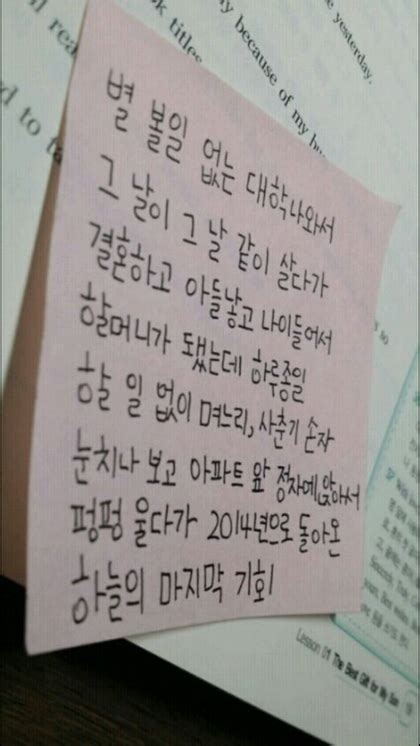 yesterday.
my because of my
k titles
별 볼일 없는 대학나와서
그 날이 그 날 같이 살다가
결혼하고 아들낳고 나이들어서
할머니가 됐는데 하루종일
할 일 없이 며느리, 사춘기 손자
눈치나 보고 아파트 앞 정자에 앉아서
펑펑 울다가 2014년으로 돌아온
하늘의 마지막 기회
Lesson 01 The Best Gift for My Son